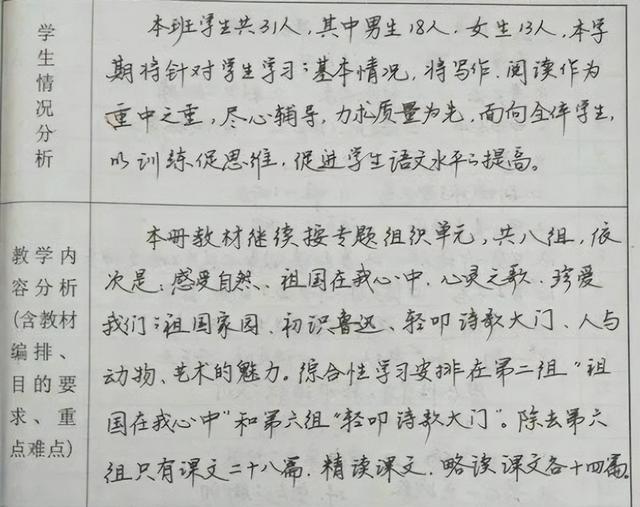 学生情况分析
本班学生共31人，其中男生18人，女生13人，本学
期将针对学生学习的基本情况，将写作、阅读作为
重中之重，尽心辅导，力求质量为先，面向全体学生，
以训练促思维，促进学生语文水平的提高。
教学内
容分析
(含教材
编排、
目的要
求、重
点难点)
本册教材继续按专题组织单元，共八组，依
次是：感受自然、祖国在我心中、心灵之歌、珍爱
我们的祖国家园、初识鲁迅、轻叩诗歌大门、人与
动物、艺术的魅力。综合性学习安排在第二组“祖
国在我心中”和第六组“轻叩诗歌大门”。除去第六
组只有课文二十八篇，精读课文、略读课文各十四篇。